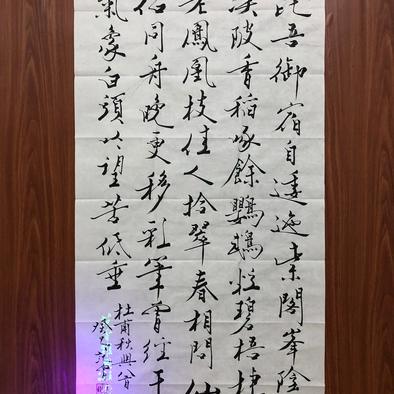 昆吾御宿自逶迤紫閣峯陰
渼陂香稻啄餘鸚鵡粒碧梧棲
老鳳凰枝佳人拾翠春相問仙
侶同舟晚更移彩筆曾經干
氣象白頭吟望苦低垂
杜甫秋興八首